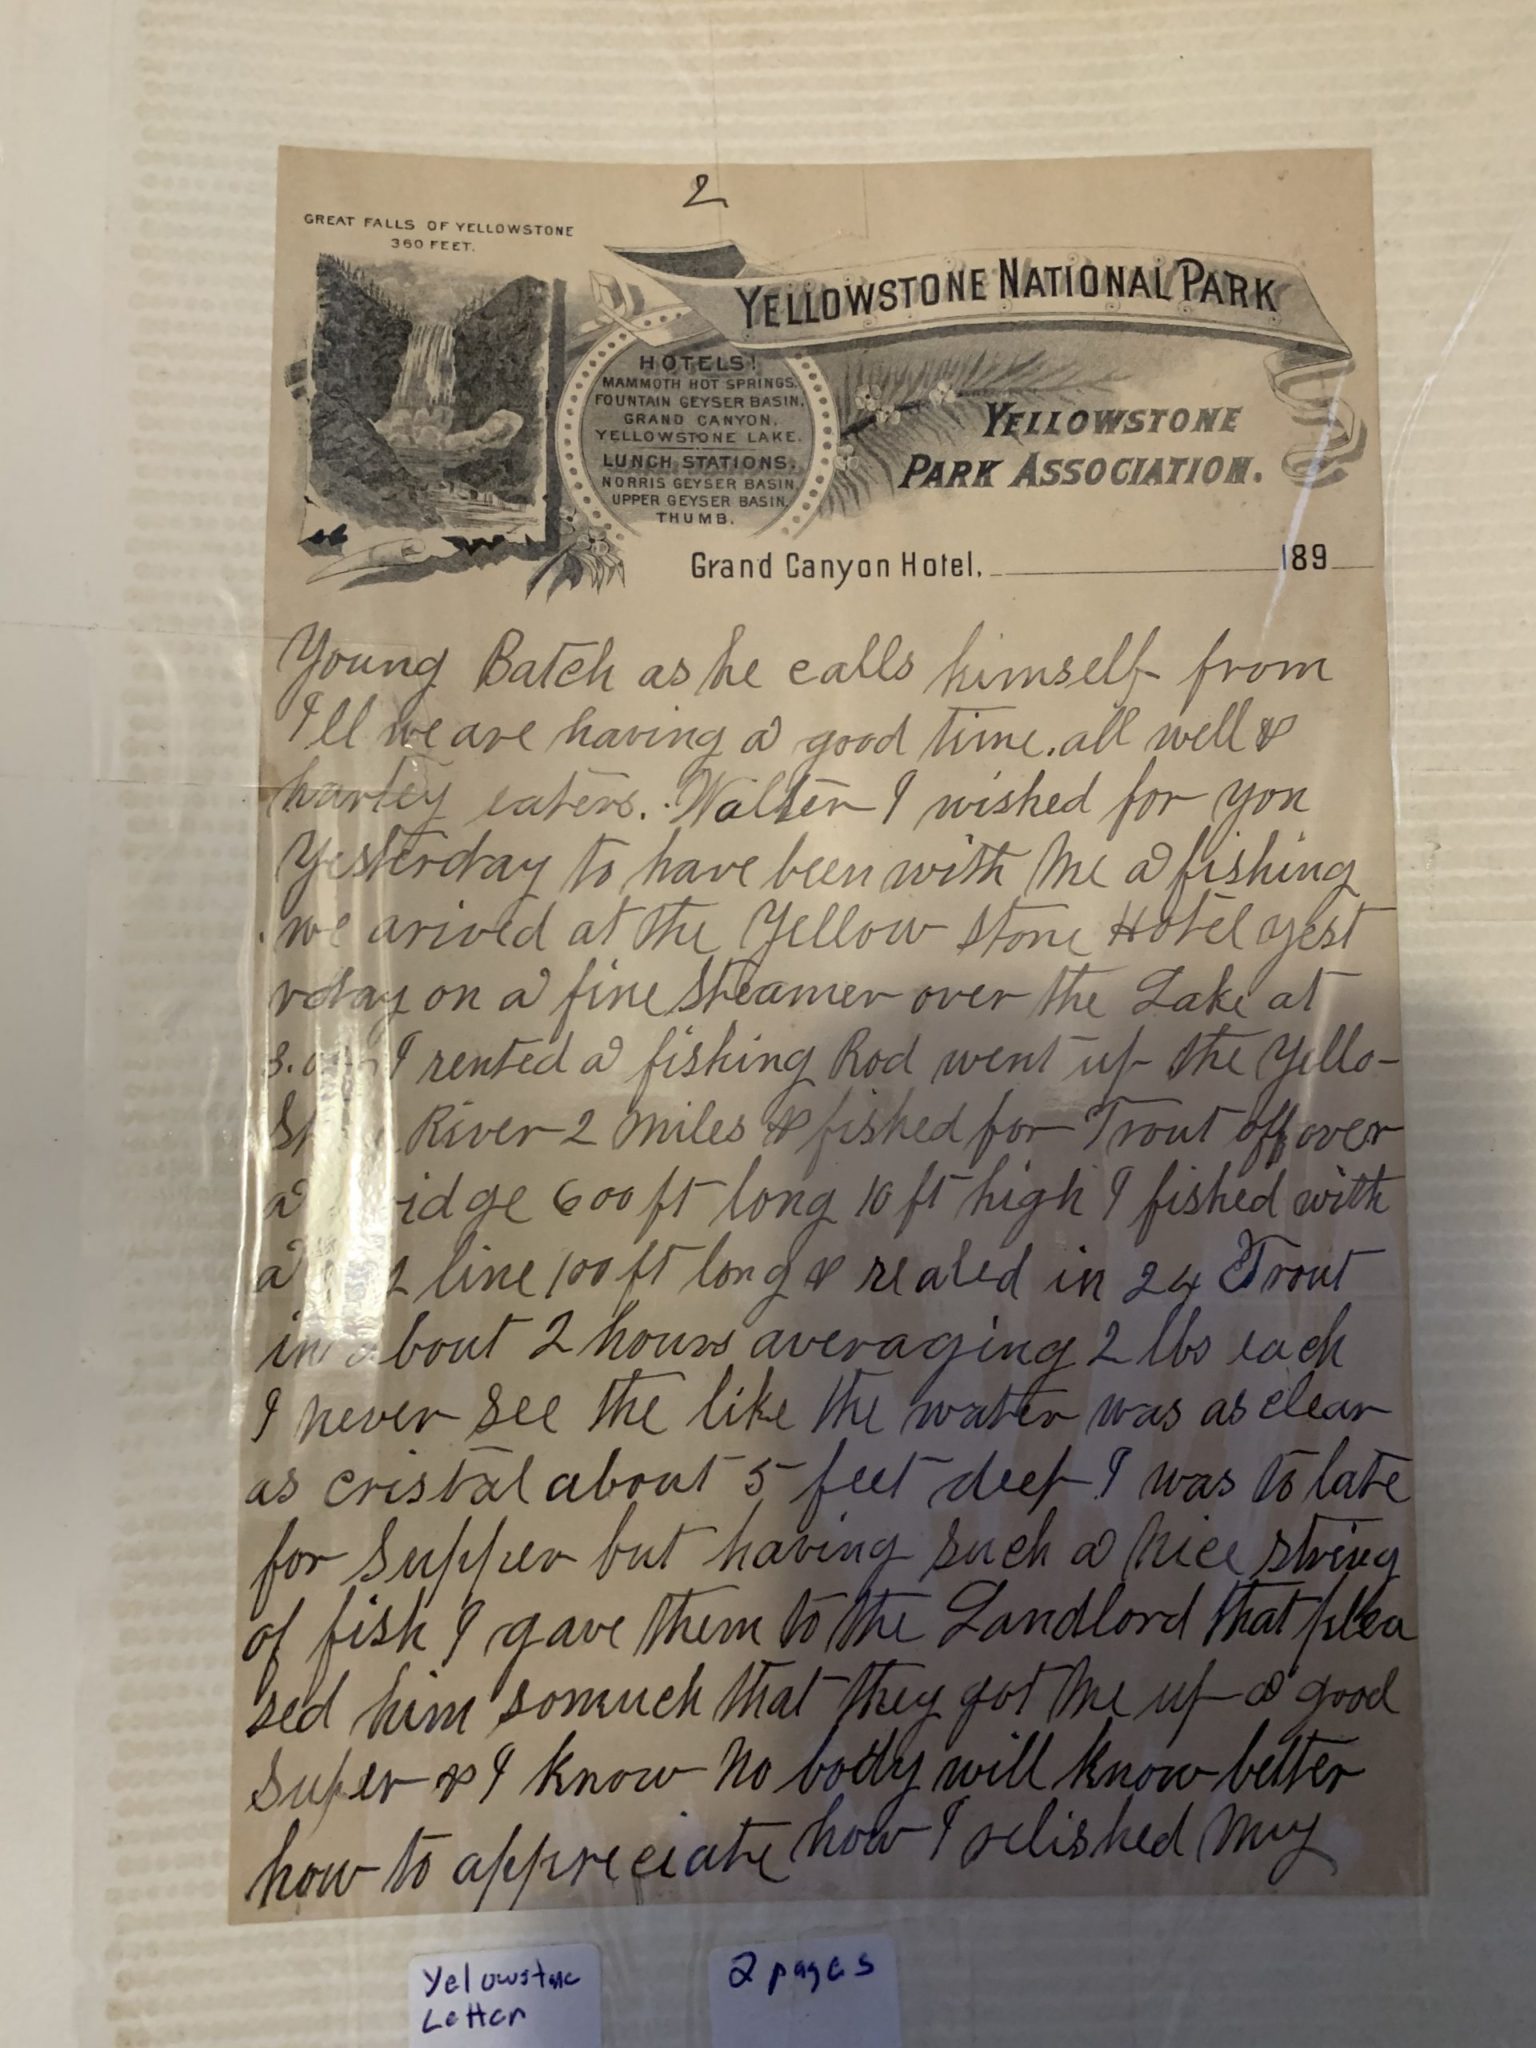 2
GREAT FALLS OF YELLOWSTONE
360 FEET.
YELLOWSTONE NATIONAL PARK
HOTELS!
MAMMOTH HOT SPRINGS,
FOUNTAIN GEYSER BASIN,
GRAND CANYON,
YELLOWSTONE LAKE.
LUNCH STATIONS.
NORRIS GEYSER BASIN,
UPPER GEYSER BASIN,
THUMB.
YELLOWSTONE
PARK ASSOCIATION.
Grand Canyon Hotel, 189
Young Batch as he calls himself from
Ill we are having a good time. all well &
hartey eaters. Walter I wished for you
Yesterday to have been with Me a fishing
we arived at the Yellow Stone Hotel yest
rday on a fine Steamer over the Lake at
I rented a fishing Rod went up the Yello-
River 2 Miles & fished for Trout off over
a 600 ft long 10 ft high I fished with
a line 100 ft long & realed in 24 Trout
in about 2 hours averaging 2 lbs each
I never see the like the water was as clear
as cristal about 5 feet deep I was to late
for Supper but having such a Nice string
of fish I gave them to the Landlord that plea
sed him somuch that they got Me up a good
Super & I know No body will know better
how to appreciate how I relished My
Yelowstone
Letter
2 pages